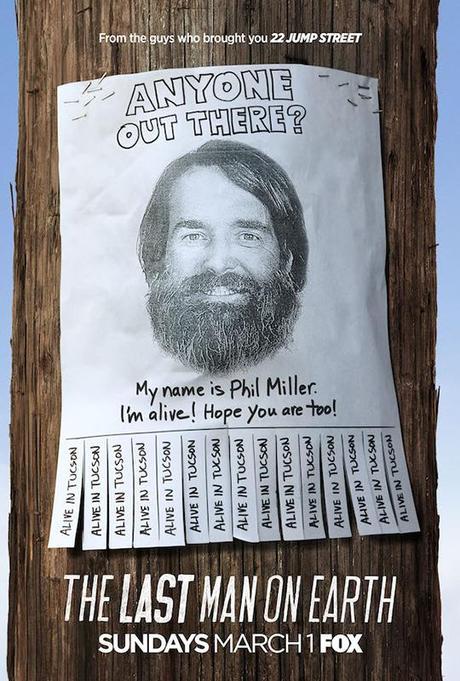 From the guys who brought you 22 JUMP STREET
ANYONE
OUT THERE?
My name is Phil Miller.
I'm alive! Hope you are too!
ALIVE IN TUCSON
ALIVE IN TUCSON
ALIVE IN TUCSON
ALIVE IN TUCSON
ALIVE IN TUCSON
ALIVE IN TUCSON
ALIVE IN TUCSON
ALIVE IN TUCSON
ALIVE IN TUCSON
ALIVE IN TUCSON
ALIVE IN TUCSON
ALIVE IN TUCSON
ALIVE IN TUCSON
ALIVE IN TUCSON
ALIVE IN TUCSON
THE LAST MAN ON EARTH
SUNDAYS MARCH 1 FOX